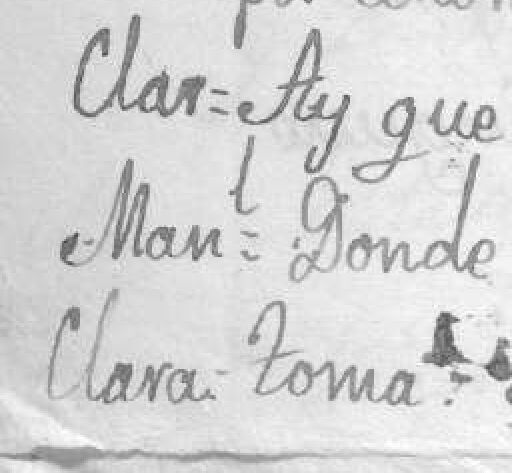 Clar= Ay que
Man= Donde
Clara= Toma